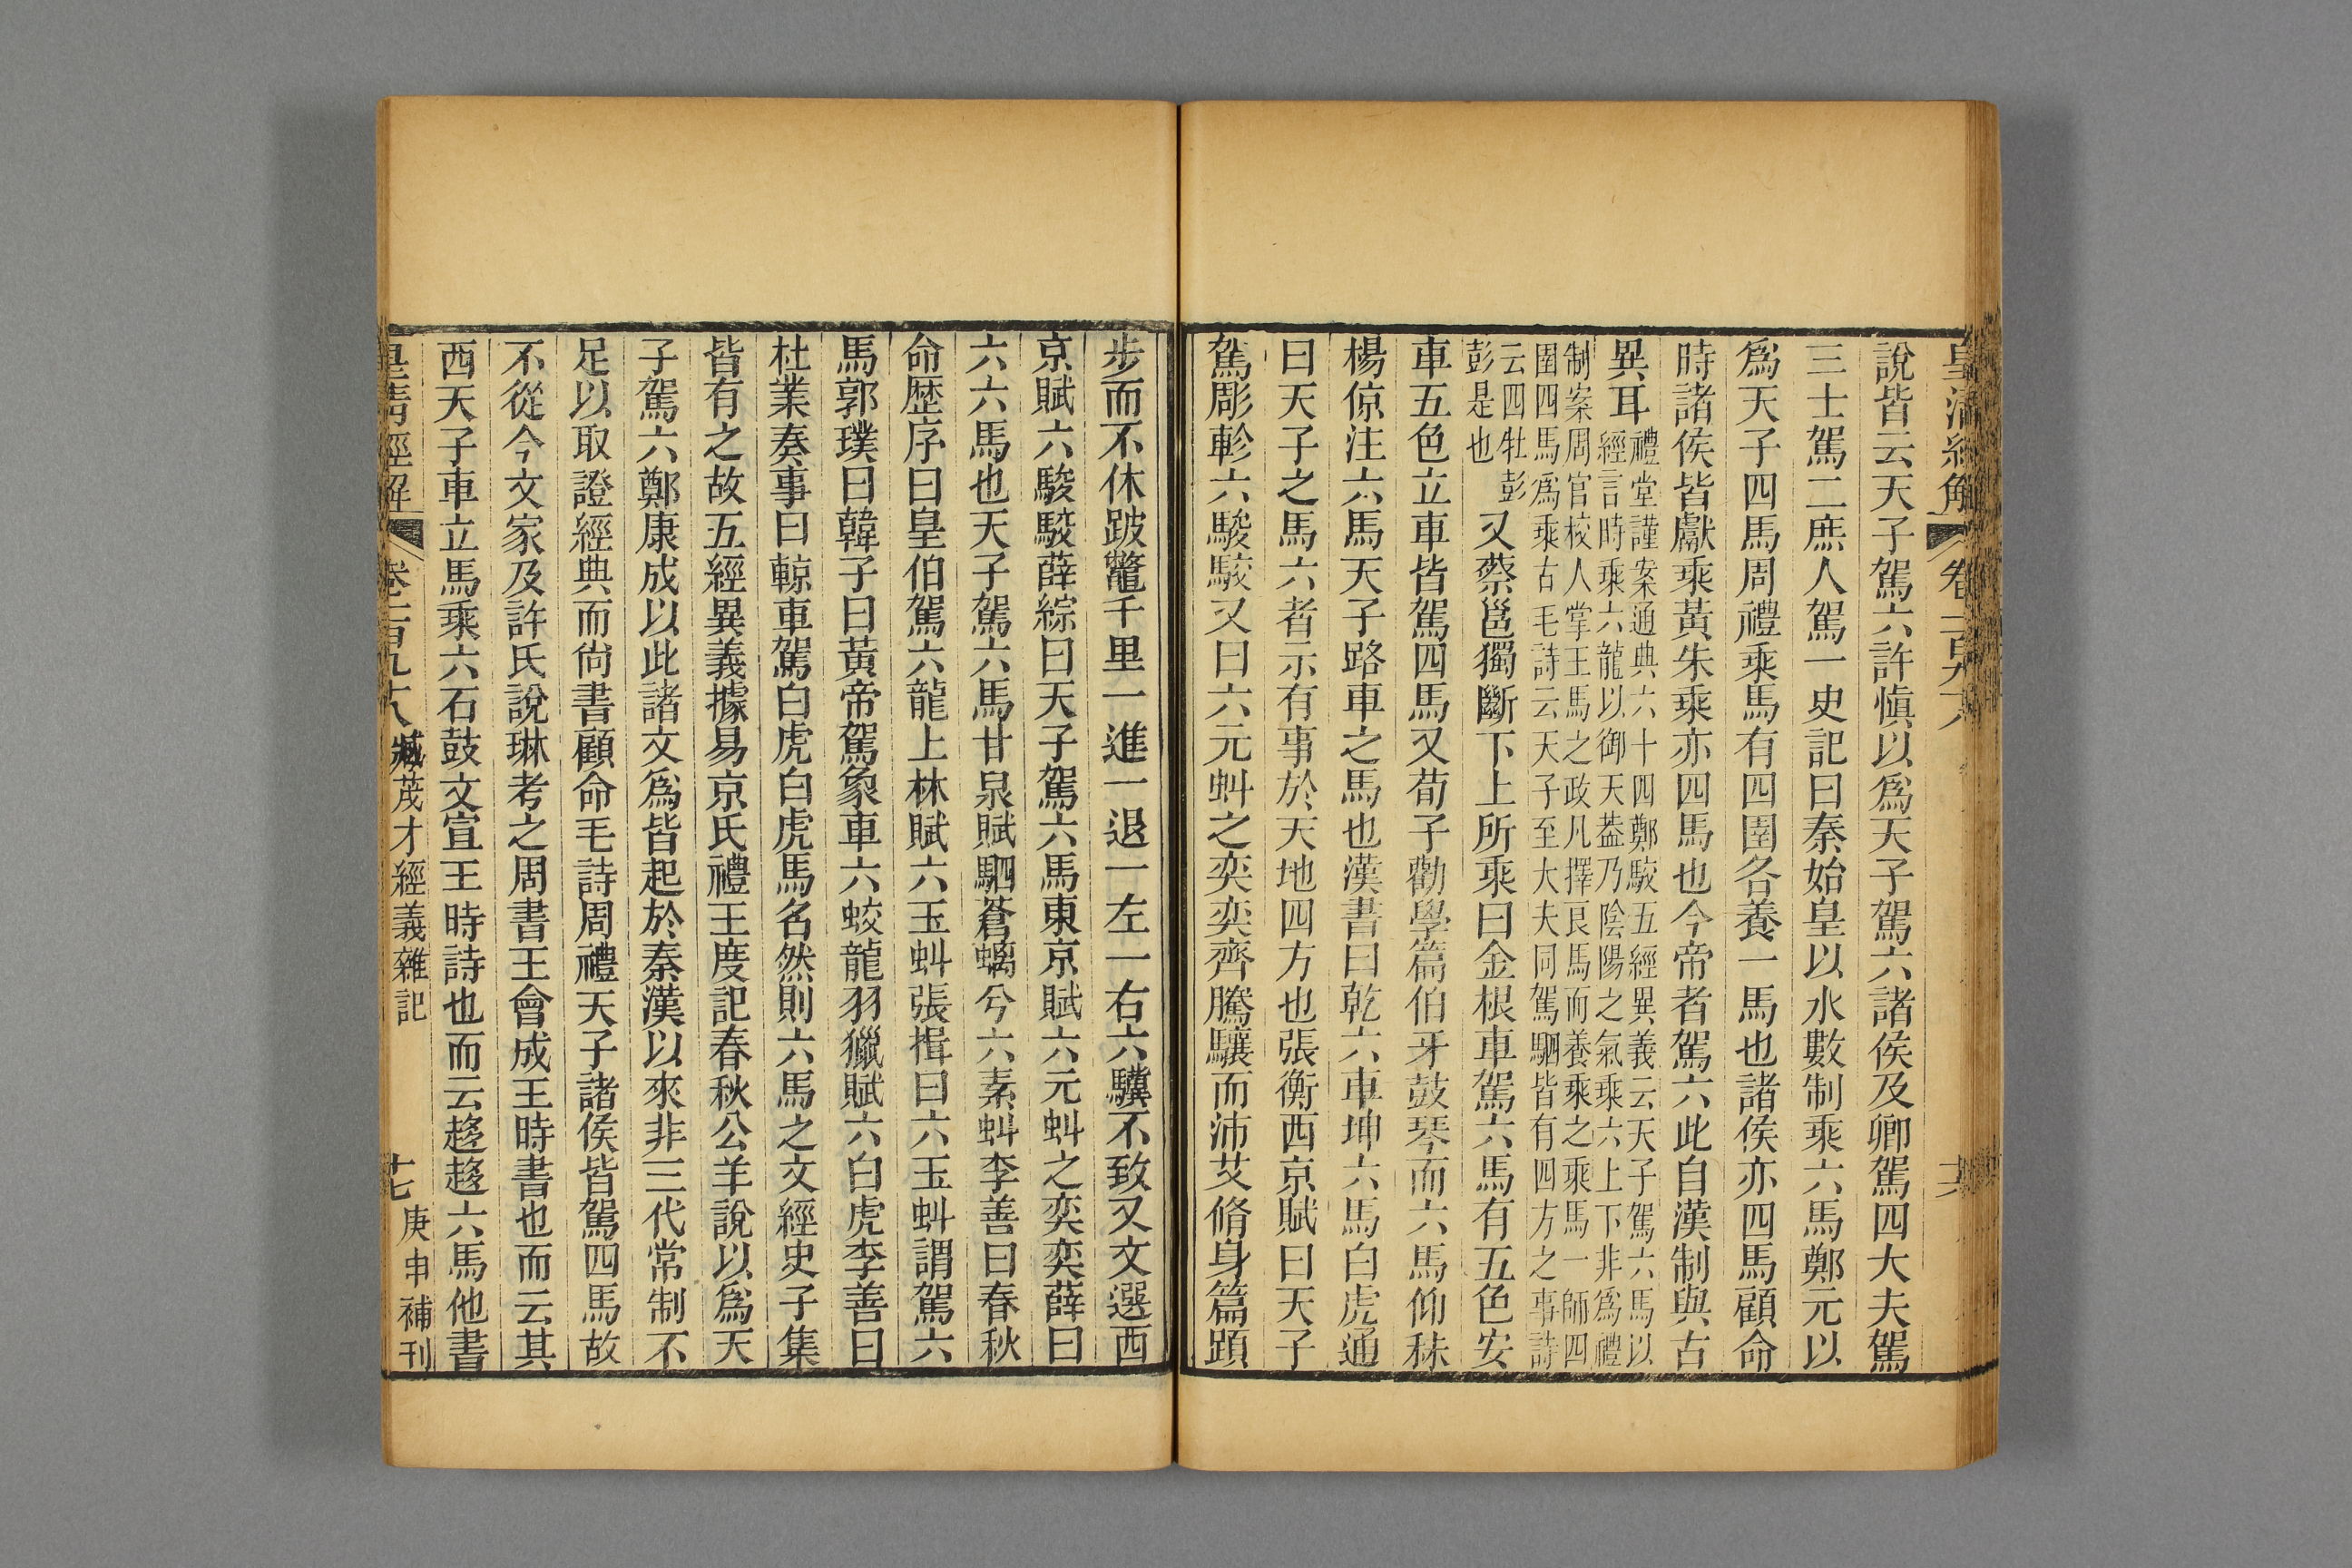 皇清經解 卷二百九十八 十六
說皆云天子駕六許愼以爲天子駕六諸侯及卿駕四大夫駕
三士駕二庶人駕一史記曰秦始皇以水數制乘六馬鄭元以
爲天子四馬周禮乘馬有四圉各養一馬也諸侯亦四馬顧命
時諸侯皆獻乘黃朱乘亦四馬也今帝者駕六此自漢制與古
異耳
禮堂謹案通典六十四鄭駮五經異義云天子駕六馬以
經言時乘六龍以御天葢乃陰陽之氣乘六上下非爲禮
制案周官校人掌王馬之政凡擇良馬而養乘之乘馬一師四
圉四馬爲乘古毛詩云天子至大夫同駕駟皆有四方之事詩
云四牡彭
彭是也
又蔡邕獨斷下上所乘曰金根車駕六馬有五色安
車五色立車皆駕四馬又荀子勸學篇伯牙鼓琴而六馬仰秣
楊倞注六馬天子路車之馬也漢書曰乾六車坤六馬白虎通
曰天子之馬六者示有事於天地四方也張衡西京賦曰天子
駕彫軫六駿駮又曰六元虯之奕奕齊騰驤而沛艾脩身篇蹞
步而不休跛鼈千里一進一退一左一右六驥不致又文選西
京賦六駿駮薛綜曰天子駕六馬東京賦六元虯之奕奕薛曰
六六馬也天子駕六馬甘泉賦駟蒼螭兮六素虯李善曰春秋
命歴序曰皇伯駕六龍上林賦六玉虯張揖曰六玉虯謂駕六
馬郭璞曰韓子曰黃帝駕象車六蛟龍羽獵賦六白虎李善曰
杜業奏事曰輬車駕白虎白虎馬名然則六馬之文經史子集
皆有之故五經異義據易京氏禮王度記春秋公羊說以爲天
子駕六鄭康成以此諸文爲皆起於秦漢以來非三代常制不
足以取證經典而尙書顧命毛詩周禮天子諸侯皆駕四馬故
不從今文家及許氏說琳考之周書王會成王時書也而云其
西天子車立馬乘六石鼓文宣王時詩也而云趍趍六馬他書
皇清經解 卷二百九十八 臧茂才經義雜記 十七 庚申補刊